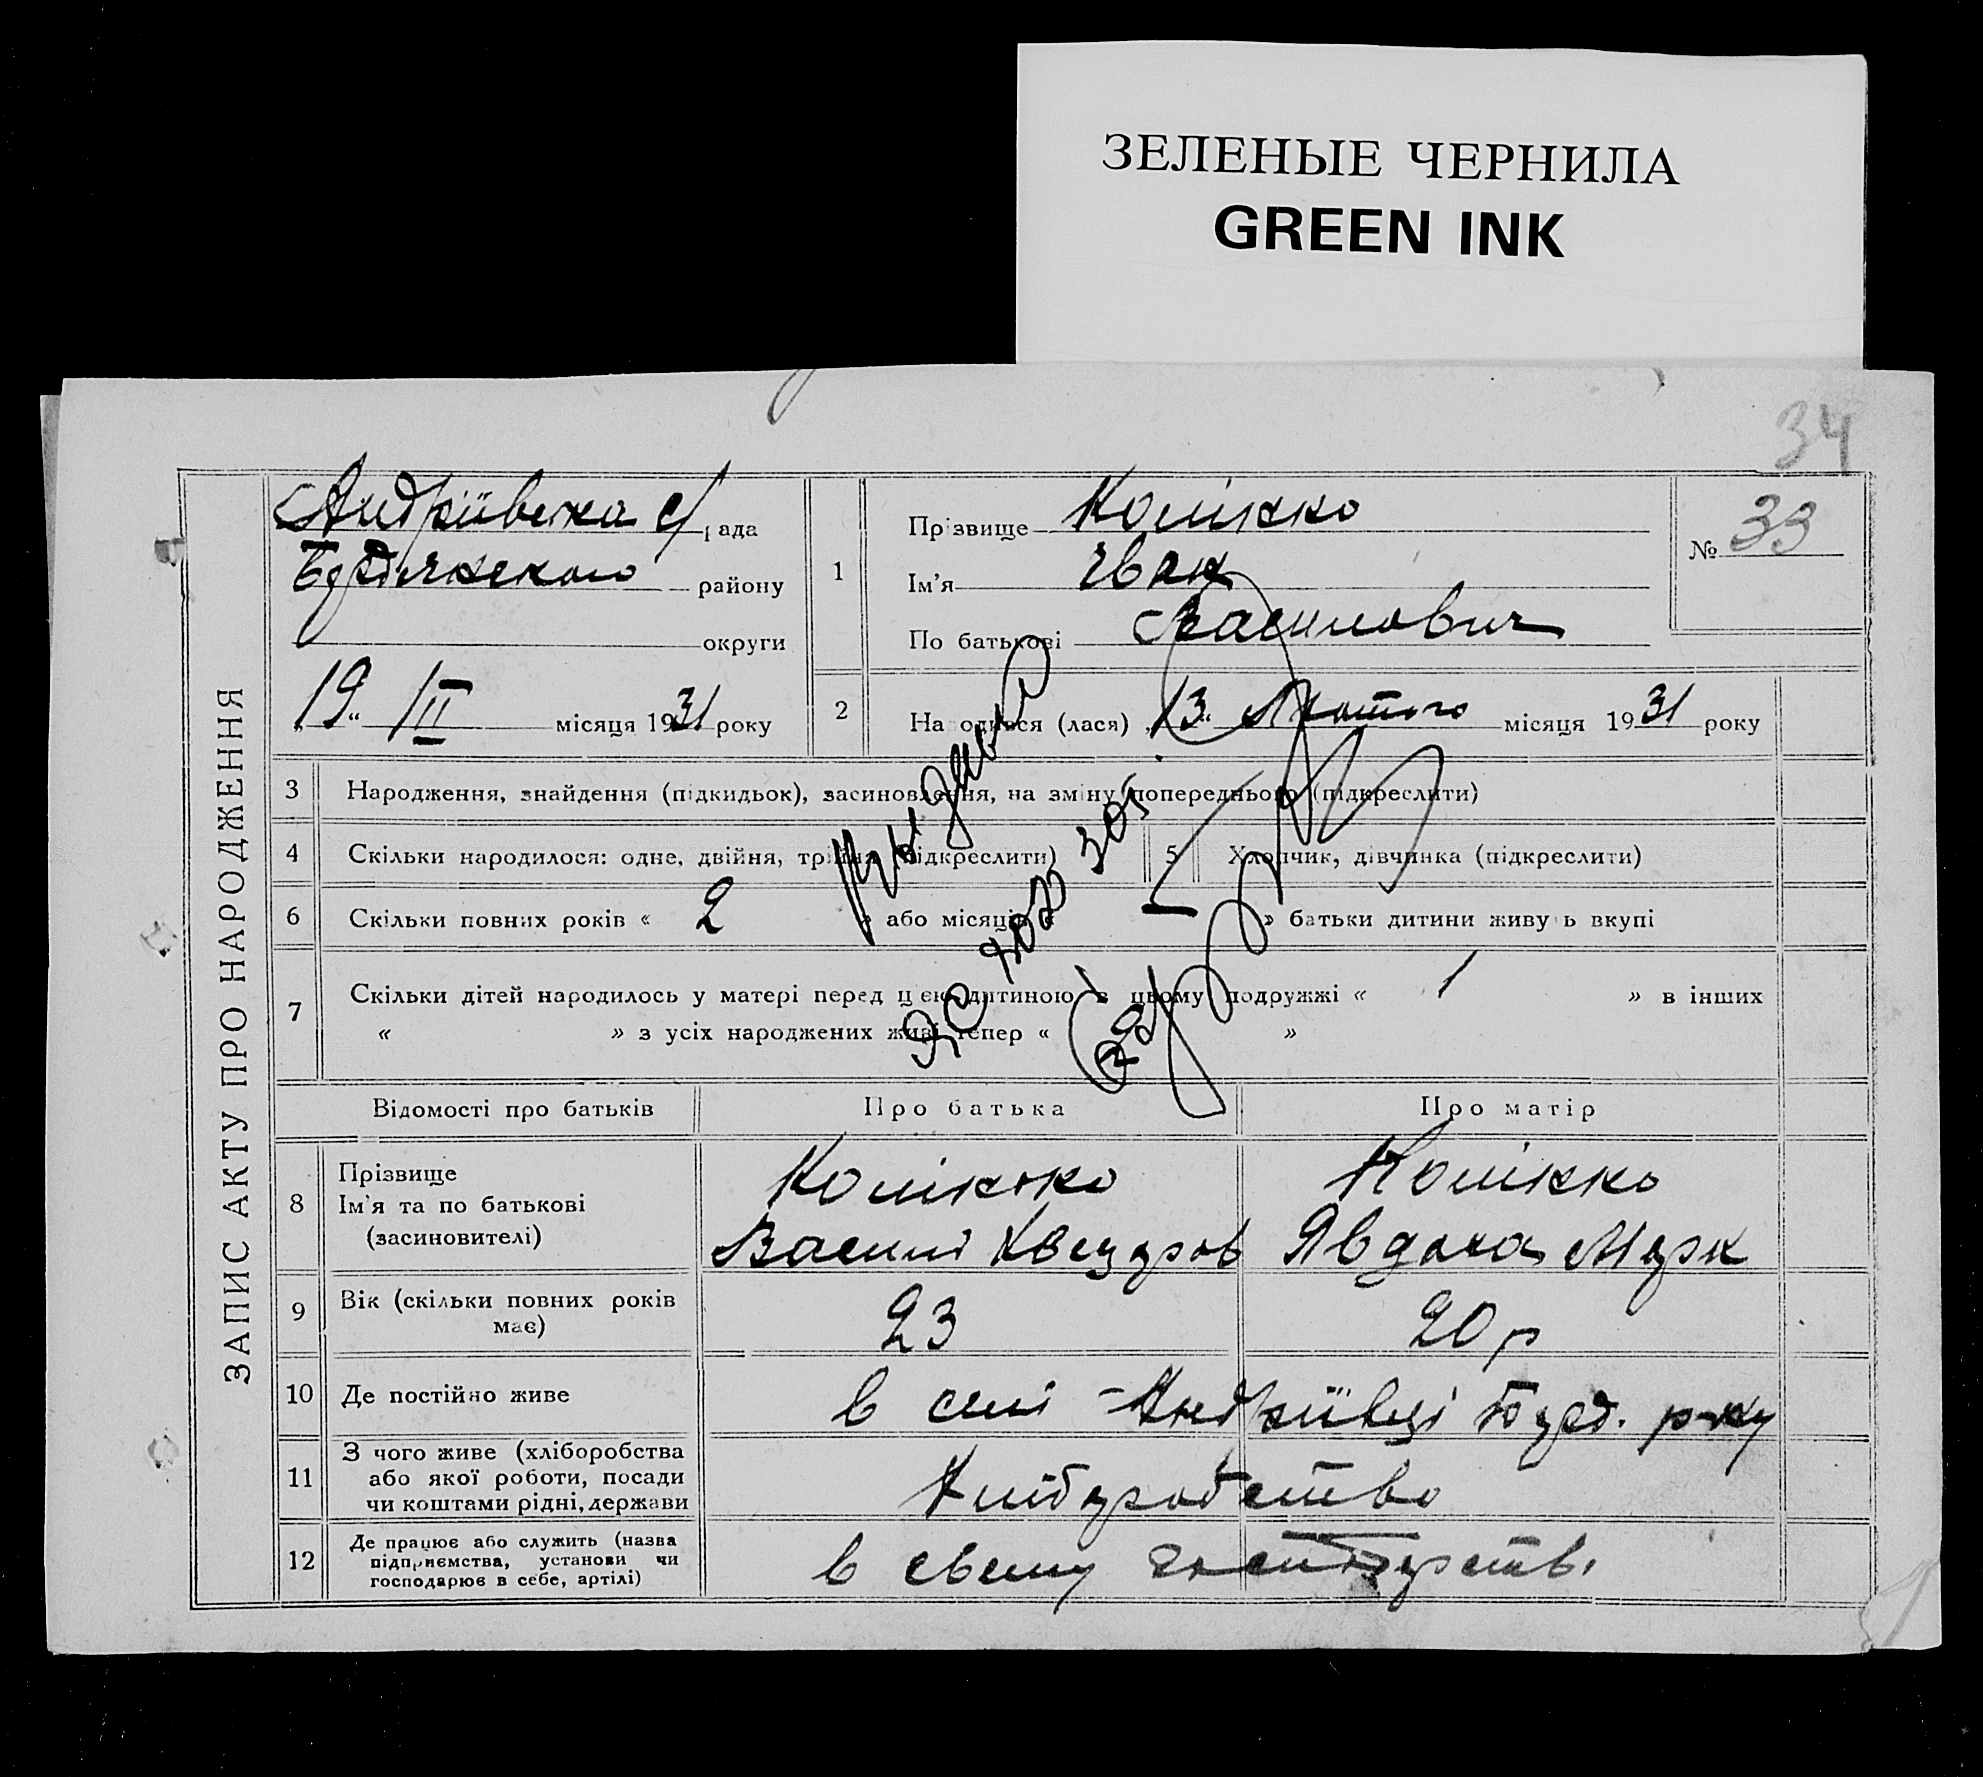 ЗЕЛЕНЫЕ ЧЕРНИЛА
GREEN INK
34
ЗАПИС АКТУ ПРО НАРОДЖЕННЯ
Андріївська с/рада
району
округи
19 " II місяця 1931 року
1
Прізвище
Ім'я Іван
По батькові Васильович
№ 33
2
На одився (лася) 13 " Лютого місяця 1931 року
3 Народження, знайдення (підкидьок), засиновлення, на зміну попереднього (підкреслити)
4 Скільки народилося: одне, двійня, трійня (підкреслити)
5 Хлопчик, дівчинка (підкреслити)
6 Скільки повних років « 2 » або місяців « — » батьки дитини живуть вкупі
7 Скільки дітей народилось у матері перед цією дитиною в цьому подружжі « 1 » в інших
« » з усіх народжених живі тепер « »
Відомості про батьків Про батька Про матір
8 Прізвище
Ім'я та по батькові
(засиновителі)
Явдоха Марк
9 Вік (скільки повних років має) 23 20 р
10 Де постійно живе в селі Андріївці р-ну
11 З чого живе (хліборобства або якої роботи, посади чи коштами рідні, держави
Хліборобство
12 Де працює або служить (назва підприємства, установи чи господарює в себе, артілі)
в своему господарстві